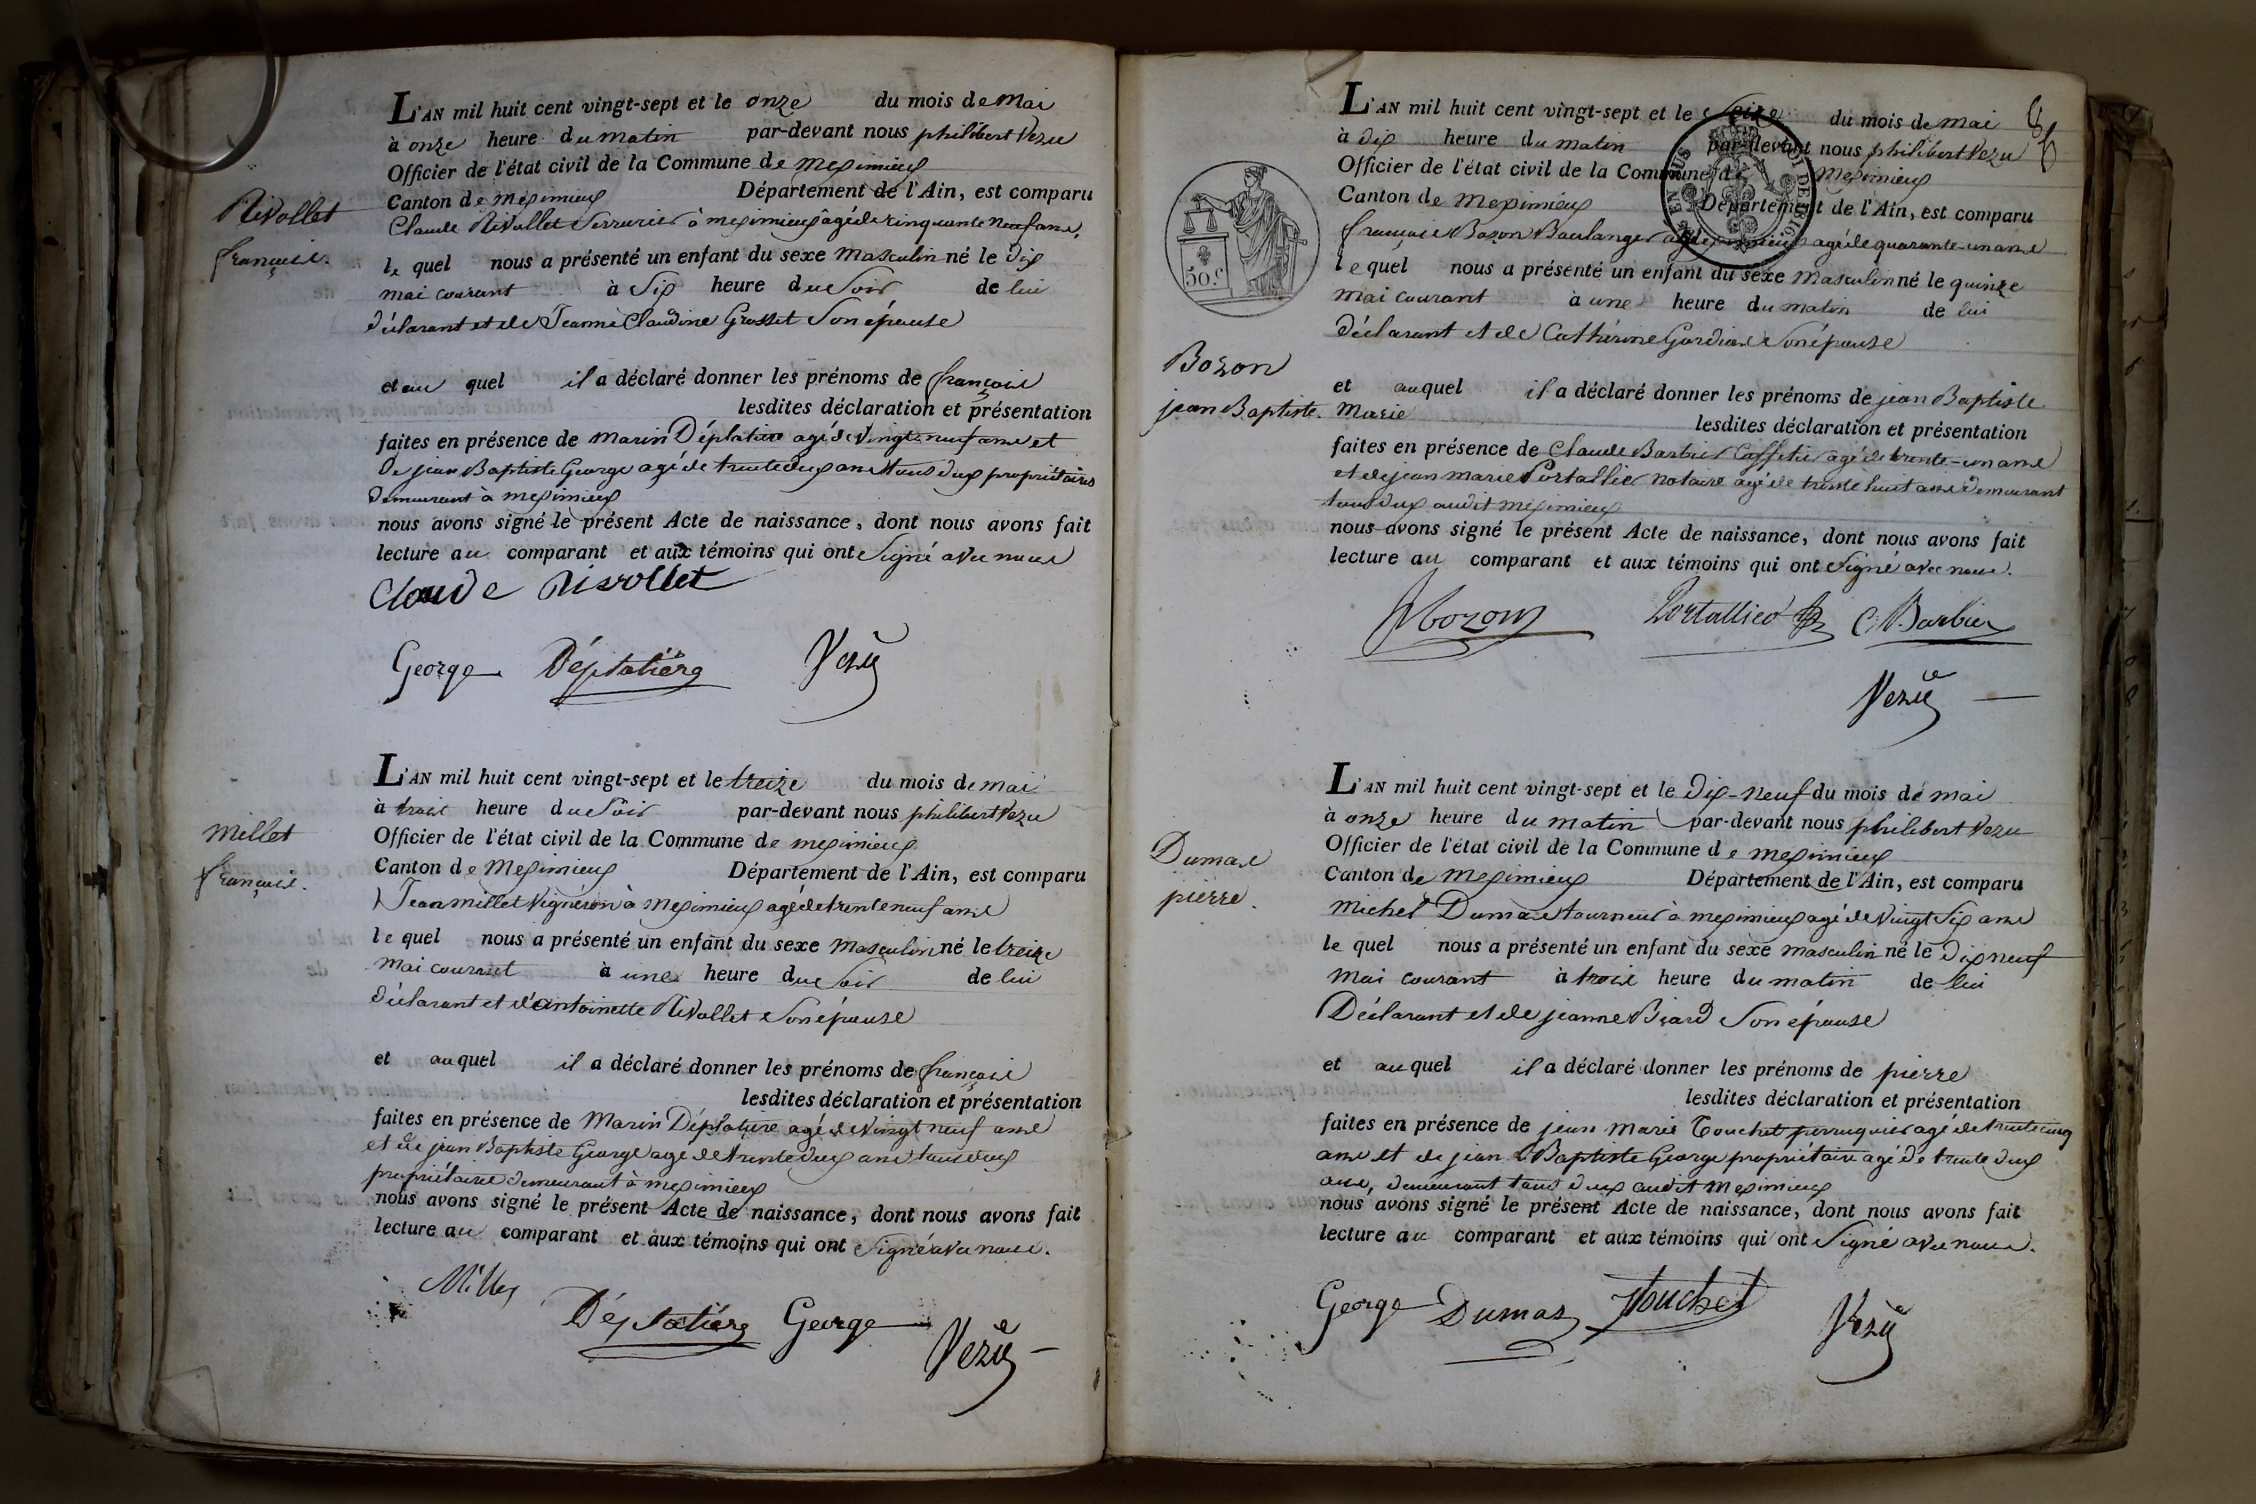 L'AN mil huit cent vingt-sept et le onze du mois de Mai
à onze heure du matin par-devant nous philibert Vezu
Officier de l'état civil de la Commune de meximieux
Canton de meximieux Département de l'Ain, est comparu
Claude Rivollet Serrurier à meximieux agé de cinquante neuf ans,
le quel nous a présenté un enfant du sexe Masculin né le dix
mai courant à Six heure du Soir de lui
déclarant et de Jeanne Claudine Grosset Son épouse
et au quel il a déclaré donner les prénoms de françois
lesdites déclaration et présentation
faites en présence de Marin Déplatière agé de Vingt neuf ans et
de jean Baptiste George agé de trente deux ans tous deux propriétaires
demeurant à meximieux
nous avons signé le présent Acte de naissance, dont nous avons fait
lecture au comparant et aux témoins qui ont Signé avec nous
Claude Rivollet
George Déplatière Vezu
Rivollet
françois.
L'AN mil huit cent vingt-sept et le treize du mois de mai
à trois heure du Soir par-devant nous philibert Vezu
Officier de l'état civil de la Commune de meximieux
Canton de Meximieux Département de l'Ain, est comparu
Jean millet Vigneron à Meximieux agé de trente neuf ans
le quel nous a présenté un enfant du sexe Masculin né le treize
mai courant à une heure du Soir de lui
déclarant et d'antoinette Rivollet Son épouse
et auquel il a déclaré donner les prénoms de françois
lesdites déclaration et présentation
faites en présence de Marin Déplatière agé de Vingt neuf ans
et de jean Baptiste George agé de trente deux ans tous deux
propriétaires demeurant à meximieux
nous avons signé le présent Acte de naissance, dont nous avons fait
lecture au comparant et aux témoins qui ont Signé avec nous.
Déplatière George
Vezu
millet
françois.
L'AN mil huit cent vingt-sept et le Seize du mois de mai
à dix heure du matin par-devant nous philibert Vezu
Officier de l'état civil de la Commune de Meximieux
Canton de Meximieux Département de l'Ain, est comparu
françois Bozon Boulanger agé de quarante-un ans
le quel nous a présenté un enfant du sexe Masculin né le quinze
mai courant à une heure du matin de lui
déclarant et de Catherine Son épouse
et auquel il a déclaré donner les prénoms de jean Baptiste
Marie
lesdites déclaration et présentation
faites en présence de Claude Barbier Caffetier agé de trente-un ans
et de jean marie Portallier notaire agé de trente huit ans demeurant
tous deux audit meximieux
nous avons signé le présent Acte de naissance, dont nous avons fait
lecture au comparant et aux témoins qui ont Signé avec nous.
Bozon Portallier C. Barbier
Vezu
50.c
Bozon
jean Baptiste.
L'AN mil huit cent vingt-sept et le Dix-neuf du mois de mai
à onze heure du matin par-devant nous philibert Vezu
Officier de l'état civil de la Commune de meximieux
Canton de Meximieux Département de l'Ain, est comparu
Michel Dumas tourneur à meximieux agé de Vingt Six ans
le quel nous a présenté un enfant du sexe masculin né le Dix neuf
mai courant à trois heure du matin de lui
Déclarant et de jeanne Biard Son épouse
et au quel il a déclaré donner les prénoms de pierre
lesdites déclaration et présentation
faites en présence de jean Marie Touchet perruquier agé de trente cinq
ans et de jean Baptiste George propriétaire agé de trente deux
ans, demeurant tous deux audit Meximieux
nous avons signé le présent Acte de naissance, dont nous avons fait
lecture au comparant et aux témoins qui ont Signé avec nous.
George Dumas Touchet Vezu
Dumas
pierre.